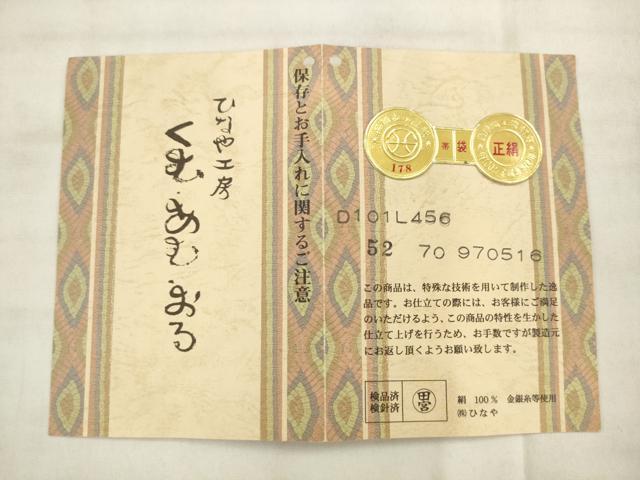 ひなや工房
くむ・あむ・おる
保存とお手入れに関するご注意
178
帯袋
正絹
D101L456
52 70 970516
この商品は、特殊な技術を用いて制作した逸
品です。お仕立ての際には、お客様にご満足
のいただけるよう、この商品の特性を生かした
仕立て上げを行うため、お手数ですが製造元
にお返し頂くようお願い致します。
検品済
検針済
田宮
絹 100% 金銀糸等使用
㈱ひなや